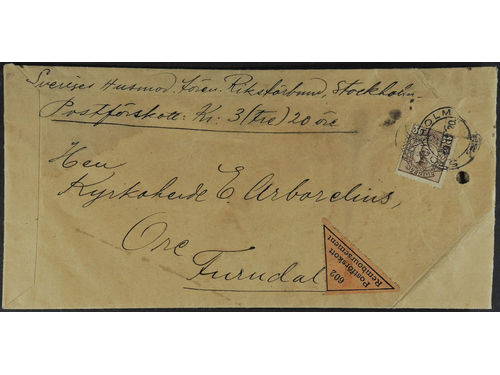 Sveriges Husmod. fören. Riksförbund, Stockholm
Postförskott: Kr: 3 (tre) 20 öre
Herr
Kyrkoherde E. Arborelius,
Ore
Furudal
602
Postförskott
Remboursement